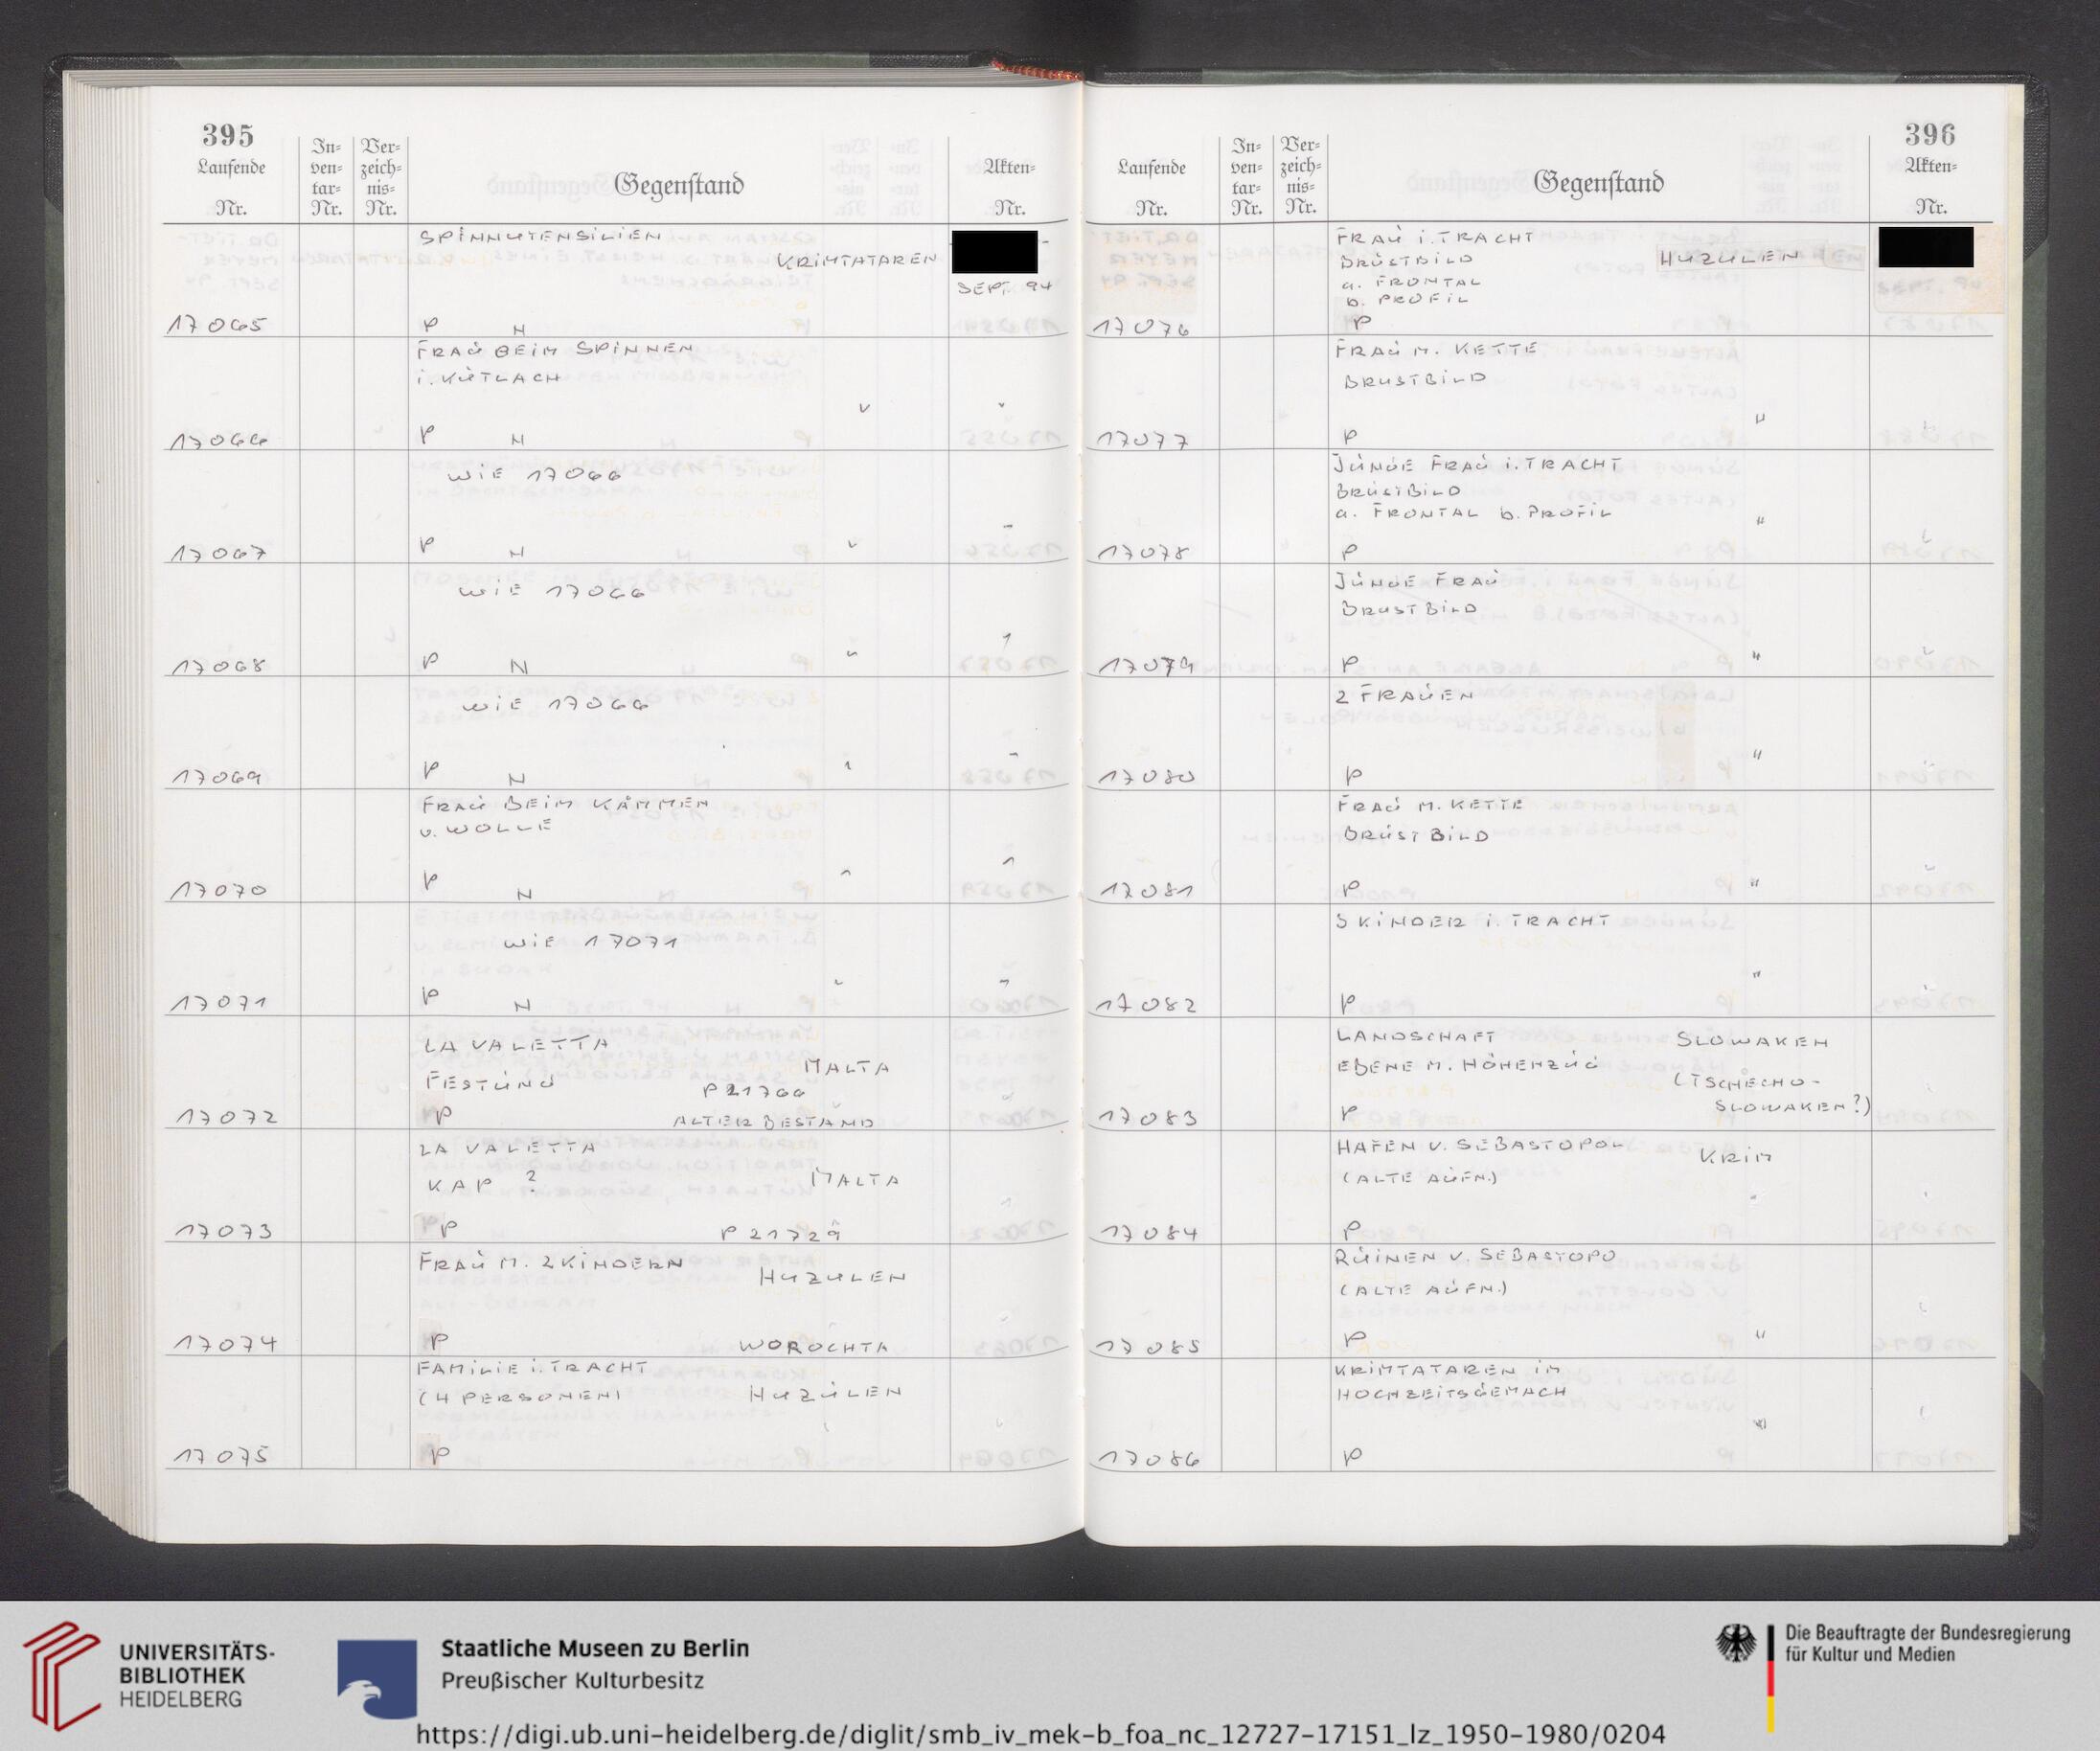 395
Laufende
Nr.
In-
ven-
tar-
Nr.
Ver-
zeich-
nis-
Nr.
Gegenstand
Akten-
Nr.
SPINNUTENSILIEN
KRIMTATAREN
SEPT. 94
17065
P N
FRAU BEIM SPINNEN
i. KÜTLACH
"
"
17066
P N
WIE 17066
17067
P N "
WIE 17066
17068
P N "
WIE 17066
17069
P N "
FRAU BEIM KÄMMEN
v. WOLLE
17070
P N "
WIE 17071
17071
P N "
LA VALETTA
MALTA
FESTUNG
P 21766
17072
P ALTER BESTAND
LA VALETTA
KAP ?
MALTA
17073
P P 21729
FRAU M. 2 KINDERN
HUZULEN
17074
P WOROCHTA
FAMILIE i. TRACHT
(4 PERSONEN) HUZULEN
17075
P
396
Laufende
Nr.
In-
ven-
tar-
Nr.
Ver-
zeich-
nis-
Nr.
Gegenstand
Akten-
Nr.
FRAU i. TRACHT
BRUSTBILD HUZULEN
a. FRONTAL
b. PROFIL
17076
P
FRAU M. KETTE
BRUSTBILD
"
17077
P
JUNGE FRAU i. TRACHT
BRUSTBILD
a. FRONTAL b. PROFIL
"
17078
P
JUNGE FRAU
BRUSTBILD
17079
P "
2 FRAUEN
"
17080
P
FRAU M. KETTE
BRUSTBILD
17081
P "
3 KINDER i. TRACHT
"
17082
P
LANDSCHAFT SLOWAKEN
EBENE M. HÖHENZUG
(TSCHECHO-
SLOWAKEN?)
17083
P
HAFEN V. SEBASTOPOL
KRIM
(ALTE AUFN.)
17084
P
RUINEN V. SEBASTOPO
(ALTE AUFN.)
17085
P "
KRIMTATAREN IM
HOCHZEITSGEMACH
"
17086
P
UNIVERSITÄTS-
BIBLIOTHEK
HEIDELBERG
Staatliche Museen zu Berlin
Preußischer Kulturbesitz
Die Beauftragte der Bundesregierung
für Kultur und Medien
https://digi.ub.uni-heidelberg.de/diglit/smb_iv_mek-b_foa_nc_12727-17151_lz_1950-1980/0204